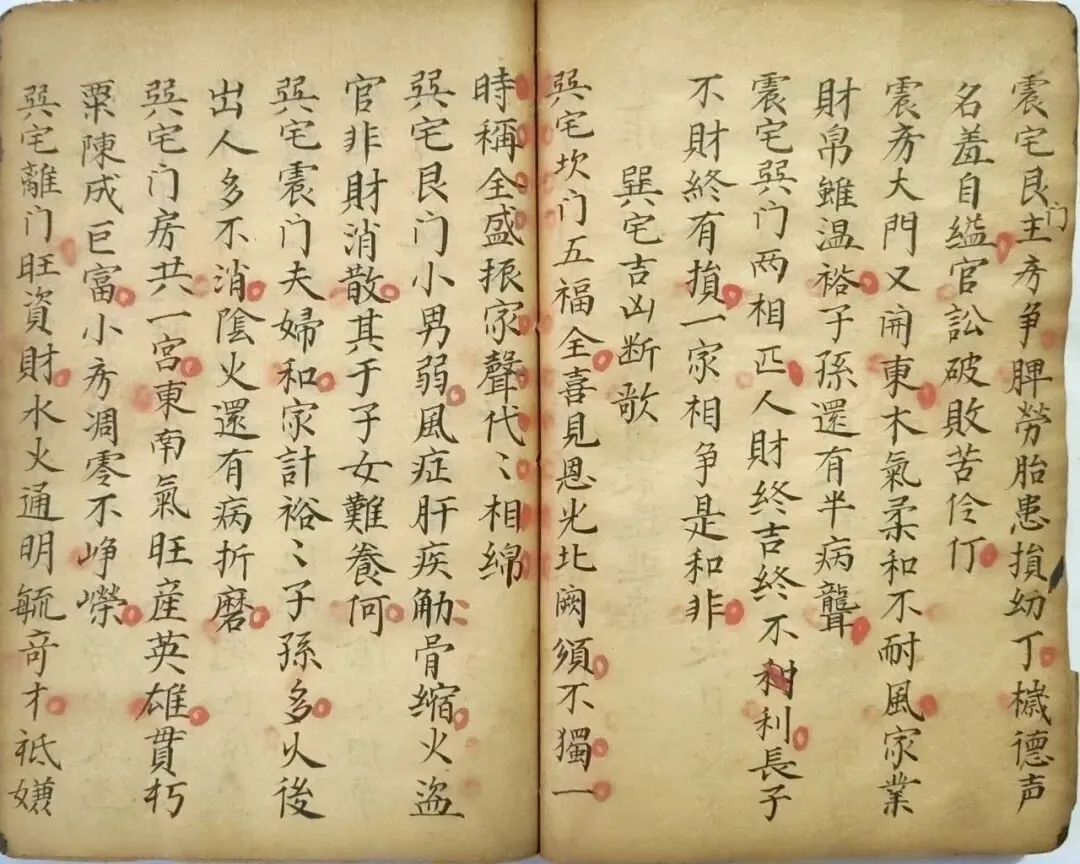 震宅艮门主房争脾勞胎患損幼丁穢德声
名羞自縊官訟破敗苦伶仃
震房大門又開東木氣柔和不耐風家業
財帛雖温裕子孫還有半病聾
震宅巽门两相匹人財終吉終不利利長子
不財終有損一家相争是和非
巽宅吉凶断歌
巽宅坎门五福全喜見恩光北阙須不獨一
時稱全盛振家聲代〻相綿
巽宅艮门小男弱風症肝疾觔骨缩火盗
官非財消散其于子女難養何
巽宅震门夫婦和家計裕〻子孫多火後
出人多不消陰火還有病折磨
巽宅门房共一宫東南氣旺産英雄貫朽
粟陳成巨富小房凋零不峥嶸
巽宅離门旺資財水火通明毓奇才祗嫌